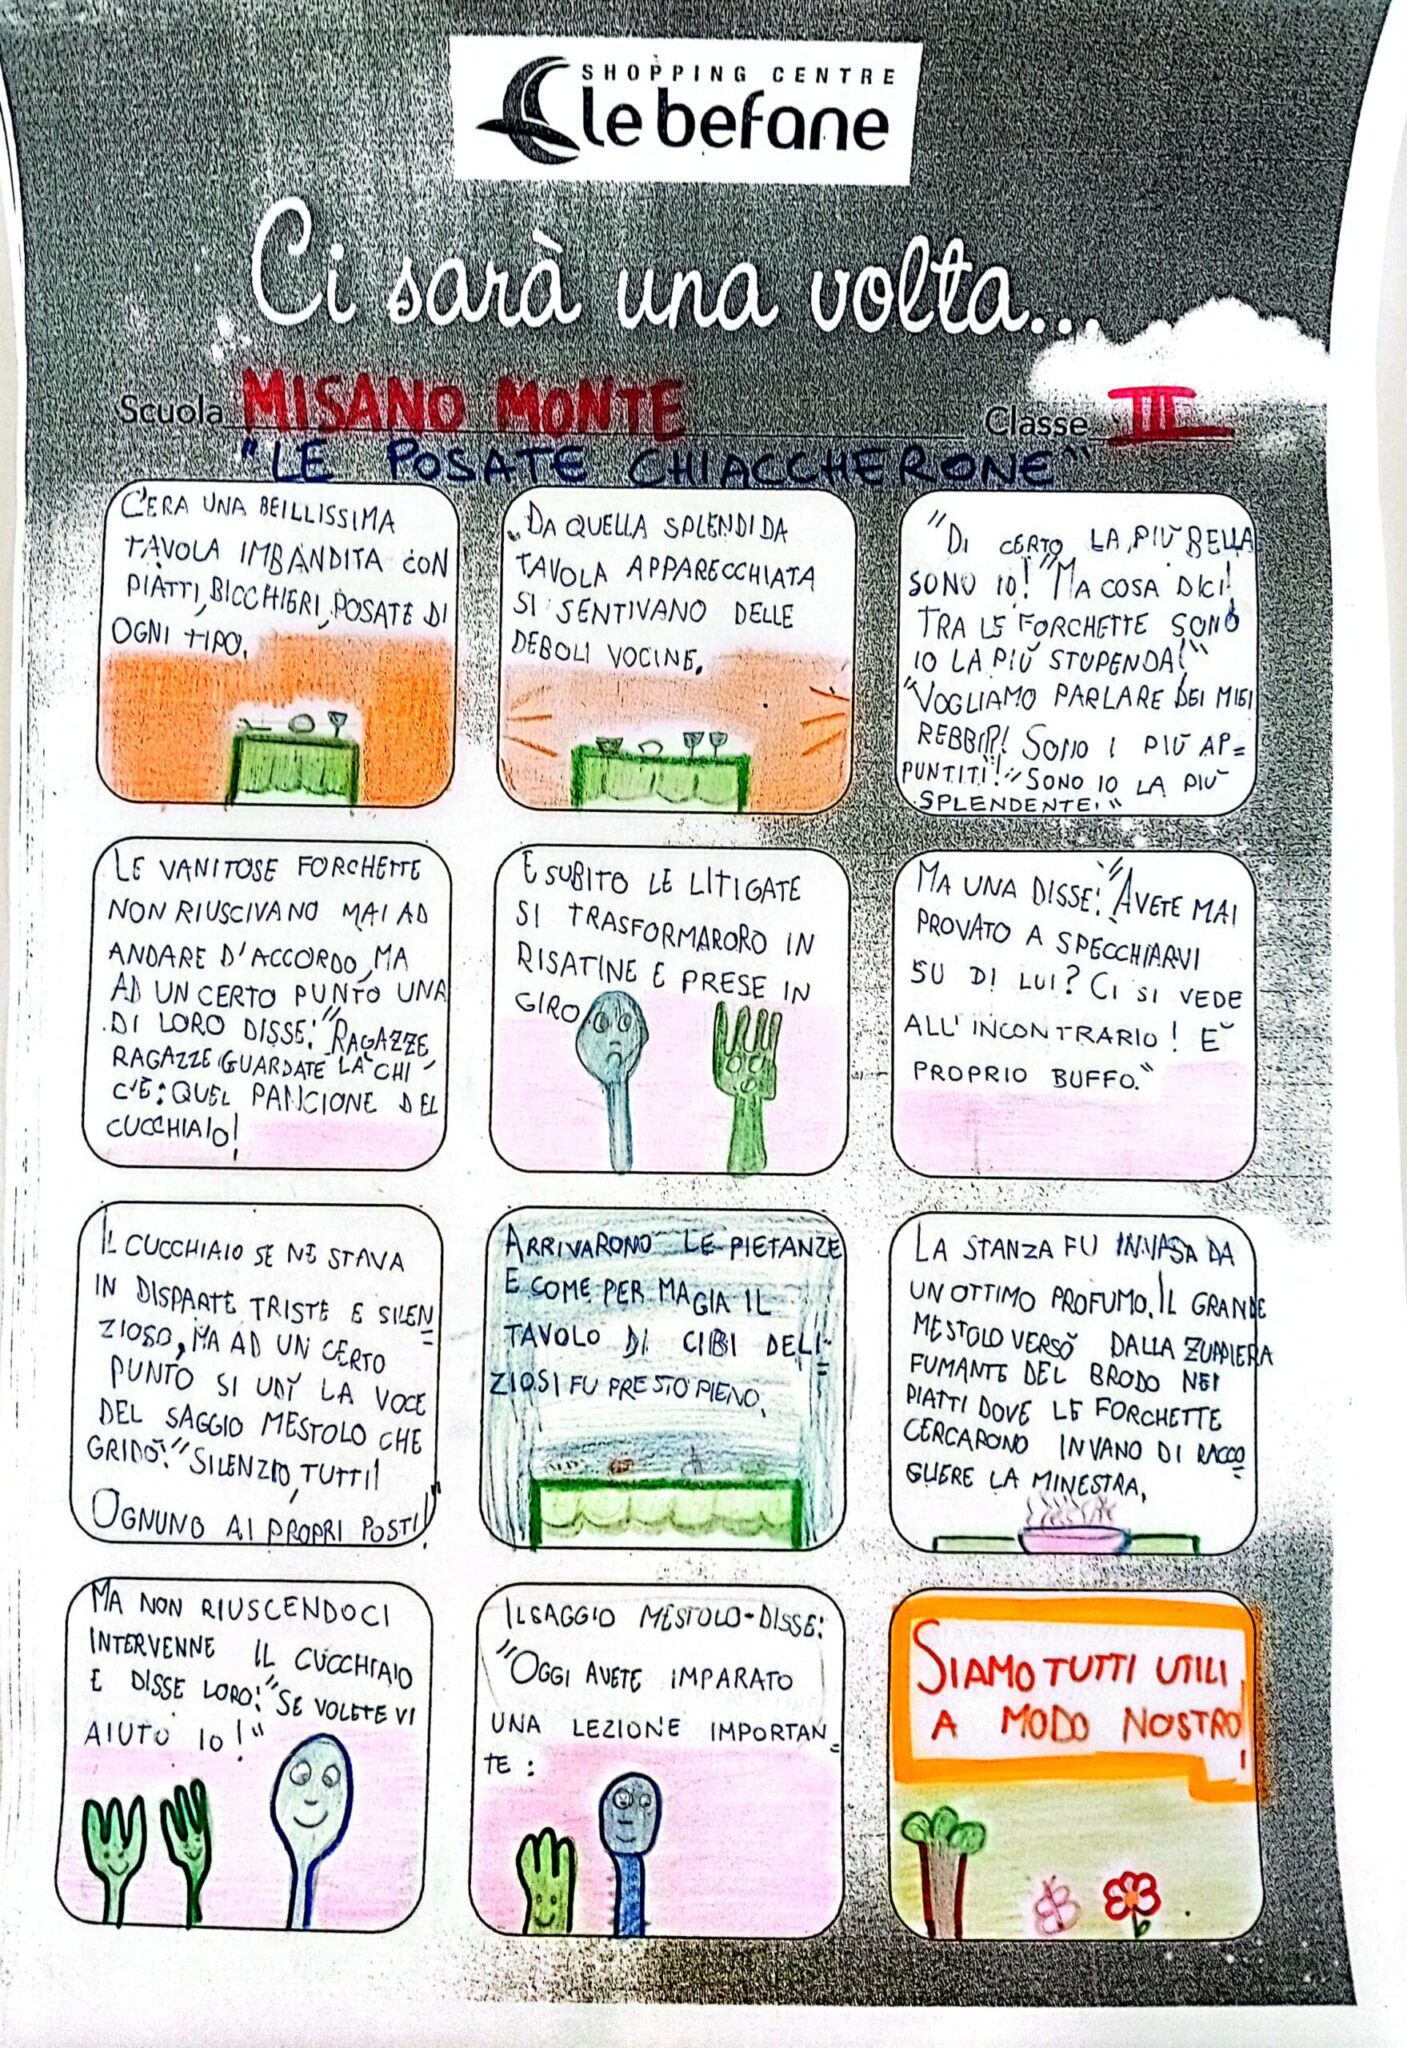 SHOPPING CENTRE
le befane
Ci sarà una volta...
Scuola MISANO MONTE Classe III
"LE POSATE CHIACCHERONE"
C'ERA UNA BEILLISSIMA
TAVOLA IMBANDITA CON
PIATTI, BICCHIERI, POSATE DI
OGNI TIPO.
DA QUELLA SPLENDIDA
TAVOLA APPARECCHIATA
SI SENTIVANO DELLE
DEBOLI VOCINE.
"DI CERTO LA PIÙ BELLA
SONO IO!" "MA COSA DICI!
TRA LE FORCHETTE SONO
IO LA PIÙ STUPENDA!"
"VOGLIAMO PARLARE DEI MIEI
REBBI?! SONO I PIÙ AP=
PUNTITI!" "SONO IO LA PIÙ
SPLENDENTE!"
LE VANITOSE FORCHETTE
NON RIUSCIVANO MAI AD
ANDARE D'ACCORDO, MA
AD UN CERTO PUNTO UNA
DI LORO DISSE: "RAGAZZE,
RAGAZZE GUARDATE LÀ CHI
C'È: QUEL PANCIONE DEL
CUCCHIAIO!
E SUBITO LE LITIGATE
SI TRASFORMARORO IN
RISATINE E PRESE IN
GIRO.
MA UNA DISSE: "AVETE MAI
PROVATO A SPECCHIARVI
SU DI LUI? CI SI VEDE
ALL'INCONTRARIO! È
PROPRIO BUFFO."
IL CUCCHIAIO SE NE STAVA
IN DISPARTE TRISTE E SILEN=
ZIOSO, MA AD UN CERTO
PUNTO SI UDÌ LA VOCE
DEL SAGGIO MESTOLO CHE
GRIDÒ: "SILENZIO, TUTTI!
OGNUNO AI PROPRI POSTI!"
ARRIVARONO LE PIETANZE
E COME PER MAGIA IL
TAVOLO DI CIBI DELI=
ZIOSI FU PRESTO PIENO.
LA STANZA FU INVASA DA
UN OTTIMO PROFUMO. IL GRANDE
MESTOLO VERSÒ DALLA ZUPPIERA
FUMANTE DEL BRODO NEI
PIATTI DOVE LE FORCHETTE
CERCARONO INVANO DI RACCO=
GLIERE LA MINESTRA.
MA NON RIUSCENDOCI
INTERVENNE IL CUCCHIAIO
E DISSE LORO: "SE VOLETE VI
AIUTO IO!"
IL SAGGIO MESTOLO DISSE:
"OGGI AVETE IMPARATO
UNA LEZIONE IMPORTAN=
TE:
SIAMO TUTTI UTILI
A MODO NOSTRO!